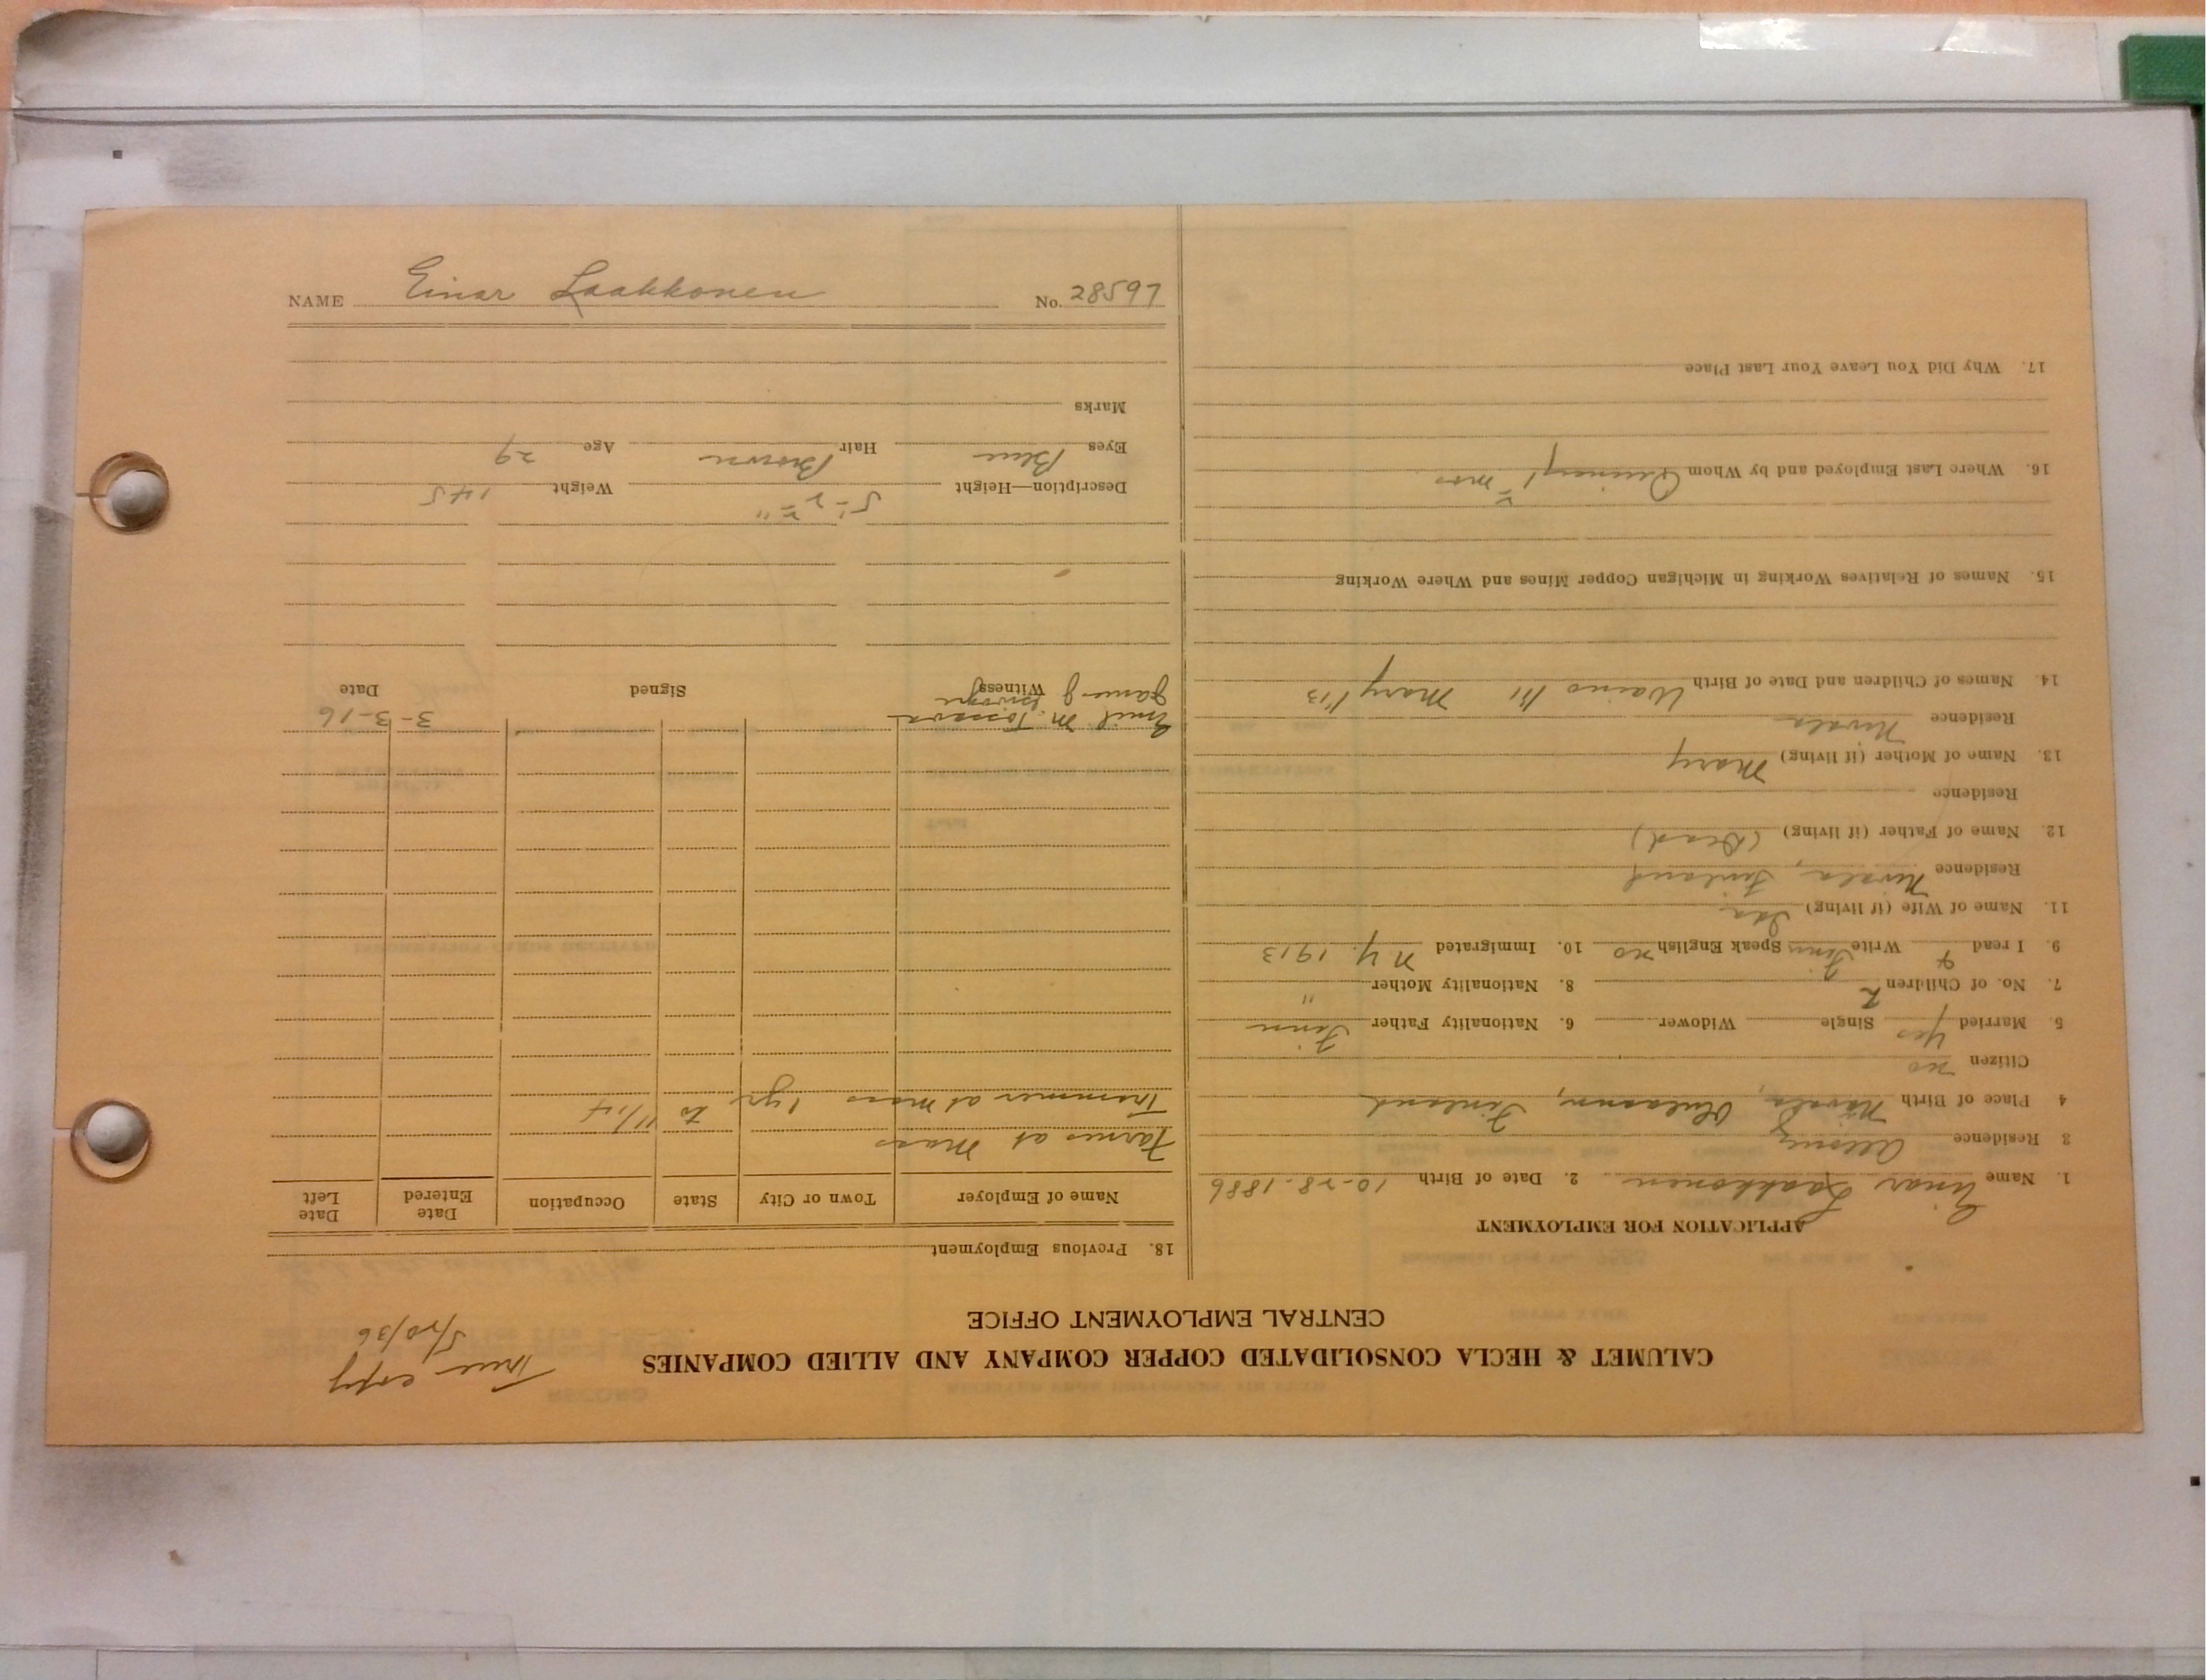 NAME Einar Laakkonen No. 28597
CALUMET & HECLA CONSOLIDATED COPPER COMPANY AND ALLIED COMPANIES
CENTRAL EMPLOYMENT OFFICE
True copy
5/20/36
APPLICATION FOR EMPLOYMENT
1. Name Einar Laakkonen 2. Date of Birth 10-28-1886
3 Residence
4 Place of Birth Nivala, Finland
Citizen no
5. Married Yes Single Widower 6. Nationality Father Finn
7. No. of Children 2 8. Nationality Mother "
9. I read & Write Finn Speak English no 10. Immigrated N.Y. 1913
11. Name of Wife (if living) Ida
Residence Nivala, Finland
12. Name of Father (if living) (Dead)
Residence
13. Name of Mother (if living) Mary
Residence Nivala
14. Names of Children and Date of Birth Waino '11 Mary '13
15. Names of Relatives Working in Michigan Copper Mines and Where Working
16. Where Last Employed and by Whom Quincy mos
17. Why Did You Leave Your Last Place
18. Previous Employment
Name of Employer Town or City State Occupation Date Entered Date Left
Farmer at Mass
Trammer at mass 1 yr to 11/14
Emil M. Tossava 3-3-16
James J
Witness Signed Date
Description—Height 5'-2" Weight 145
Eyes Blue Hair Brown Age 29
Marks